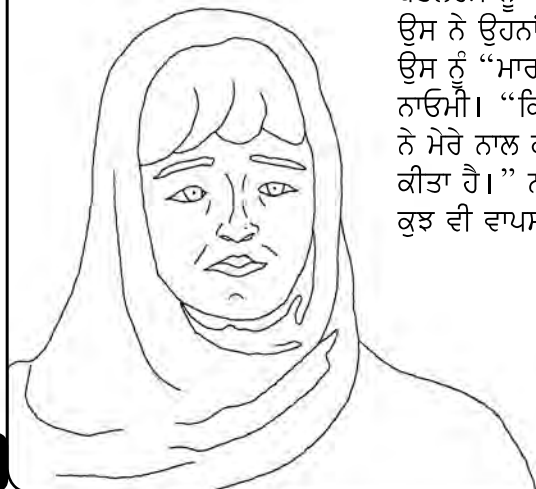 ਉਸ ਨੇ ਉਹਨਾਂ
ਉਸ ਨੂੰ “ਮਾਰ
ਨਾਓਮੀ। “ਕਿ
ਨੇ ਮੇਰੇ ਨਾਲ
ਕੀਤਾ ਹੈ।” ਨ
ਕੁਝ ਵੀ ਵਾਪਸ